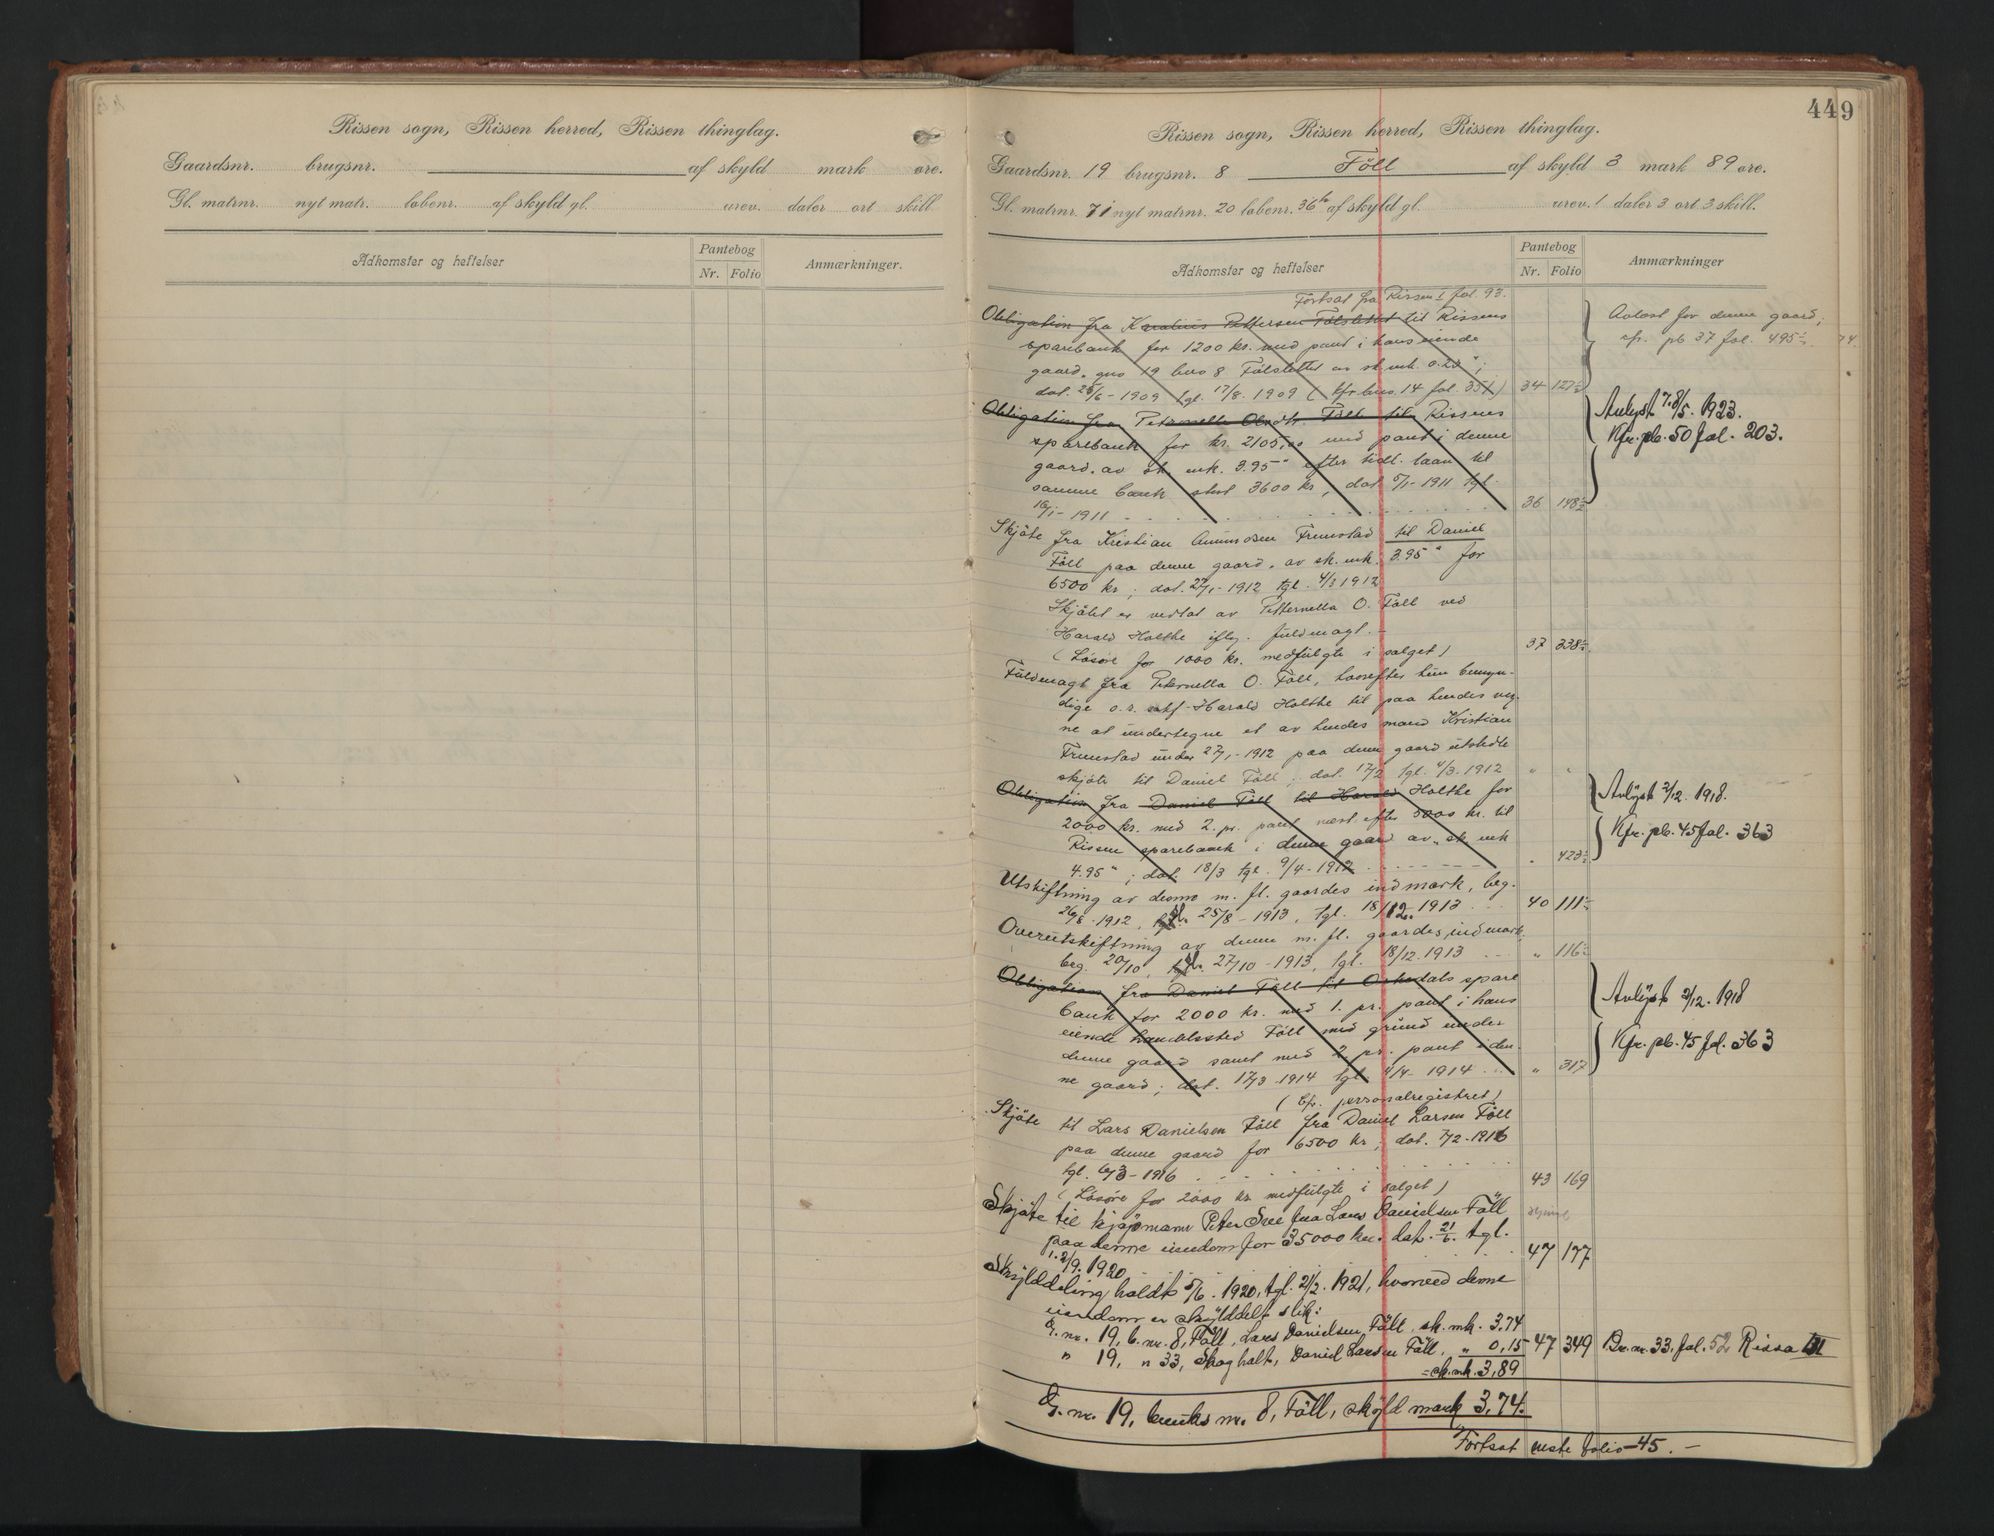 Rissen sogn, Rissen herred, Rissen thinglag.
Gaardsnr. brugsnr. af skyld mark øre.
Gl. matrnr. nyt matr. løbenr. af skyld gl. urev. daler ort skill.
Adkomster og heftelser
Pantebog
Nr. Folio
Anmærkninger.
449
Rissen sogn, Rissen herred, Rissen thinglag.
Gaardsnr. 19 brugsnr. 8 Föll af skyld 3 mark 89 øre.
Gl. matrnr. 71 nyt matrnr. 20 løbenr. 36b af skyld gl. urev. 1 daler 3 ort 3 skill.
Adkomster og heftelser
Pantebog
Nr. Folio
Anmærkninger
Fortsat fra Rissen I fol. 93.
Obligation fra Pettersen Fölslettet til Rissens
sparebank for 1200 kr. med pant i hans eiende
gaard, gno 19 bno 8 Fölslettet av sk. mk. 0.23";
dat. 25/6-1909 tgl. 17/8. 1909 (kfr bno. 14 fol. 351) 34 127
Avlæst for denne gaard;
cfr. pb 37 fol. 495
Obligation fra Petronella Olsdt. Föll til Rissens
sparebank for kr. 2105,00 med pant i denne
gaard, av sk. mk. 3.95" efter tidl. laan til
samme bank stort 3600 kr, dat 5/1-1911 tgl.
16/1-1911 36 148
Avlyst 7.8/5. 1923.
Kfr. pb. 50 fol. 203.
Skjöte fra Kristian Ammosen Frenstad til Daniel
Föll paa denne gaard, av sk. mk. 3.95" for
6500 kr; dat. 27/1-1912 tgl. 4/3 1912
Skjötet er vedtat av Petternella O. Föll ved
Harald Holthe iflg. fuldmagt. -
(Lösöre for 1000 kr. medfulgte i salget) 37 338
Fuldmagt fra Peternella O. Föll, hvorefter hun bemyn-
dige o.r. sakf. Harald Holthe til paa hendes veg-
ne at undertegne et av hendes mand Kristian
Frenstad under 27/1-1912 paa denne gaard utstedte
skjöte til Daniel Föll; dat. 17/2 tgl. 4/3-1912 " "
Obligation fra Daniel Föll til Harald Holthe for
2000 kr. med 2. pr. pant næst efter 3000 kr. til
Rissen sparebank i denne gaard av sk mk
4.95"; dat. 18/3 tgl. 9/4-1912 " 423
Avlyst 2/12. 1918.
Kfr. pb. 45 fol. 363
Utskiftning av denne m. fl. gaardes indmark, beg.
26/8-1912, 25/8-1913, tgl. 18/12. 1913 40 111
Overutskiftning av denne m. fl. gaardes indmark,
beg. 20/10, 27/10-1913, tgl. 18/12.1913 " 116
Obligation fra Daniel Föll til Orkedals spare
bank for 2000 kr. med 1. pr. pant i hans
eiende handelssted Föll med grund under
denne gaard samt med 2. pr. pant i den-
ne gaard; dat. 17/3-1914 tgl. 4/4-1914 " 317
(Cfr. personalregistret)
Avlyst 2/12. 1918
Kfr. pb. 45 fol. 363
Skjöte til Lars Danielsen Föll fra Daniel Larsen Föll
paa denne gaard for 6500 kr; dat. 7/2-1916
tgl. 6/3-1916 43 169
(Lösöre for 2000 kr medfulgte i salget)
Skjöte til kjøpmann Peter Sve fra Lars Danielsen Föll
paa denne eiendom for 35000 kr. dat. 21/6. tgl.
1.2/9. 1920 47 177
Skylddeling holdt 5/6. 1920, tgl. 2/2. 1921, hvorved denne
eiendom er skylddelt slik:
G. nr. 19, b. nr. 8, Föll, Lars Danielsen Föll, sk. mk. 3,74
" 19, " 33, Skogholt, Daniel Larsen Föll, " 0,15 47 349 Br. nr. 33, fol. 52 Rissa III
= sk. mk. 3,89
G. nr. 19, bruks nr. 8, Föll, skyld mark 3,74.
Fortsat neste folio 45. -